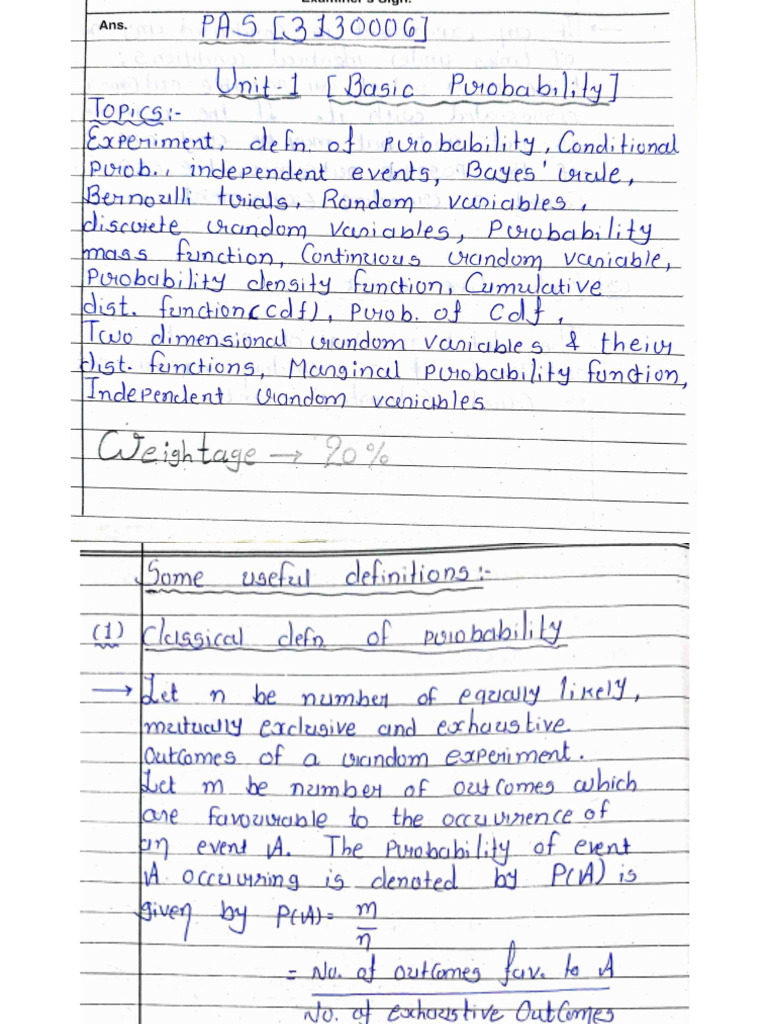 Examiner's Sign:
Ans. PAS [3130006]
Unit-1 [Basic Probability]
Topics:-
Experiment, defn. of probability, Conditional
prob., independent events, Bayes' rule,
Bernoulli trials, Random variables,
discrete random variables, Probability
mass function, Continuous random variable,
Probability density function, Cumulative
dist. function(cdf), prob. of Cdf,
Two dimensional random variables & their
dist. functions, Marginal probability function,
Independent random variables
Weightage → 20%
Some useful definitions:-
(1) Classical defn of probability
→ Let n be number of equally likely,
mutually exclusive and exhaustive
outcomes of a random experiment.
Let m be number of outcomes which
are favourable to the occurrence of
an event A. The Probability of event
A occurring is denoted by P(A) is
given by P(A)= m/n
= No. of outcomes fav. to A
No. of exhaustive Outcomes